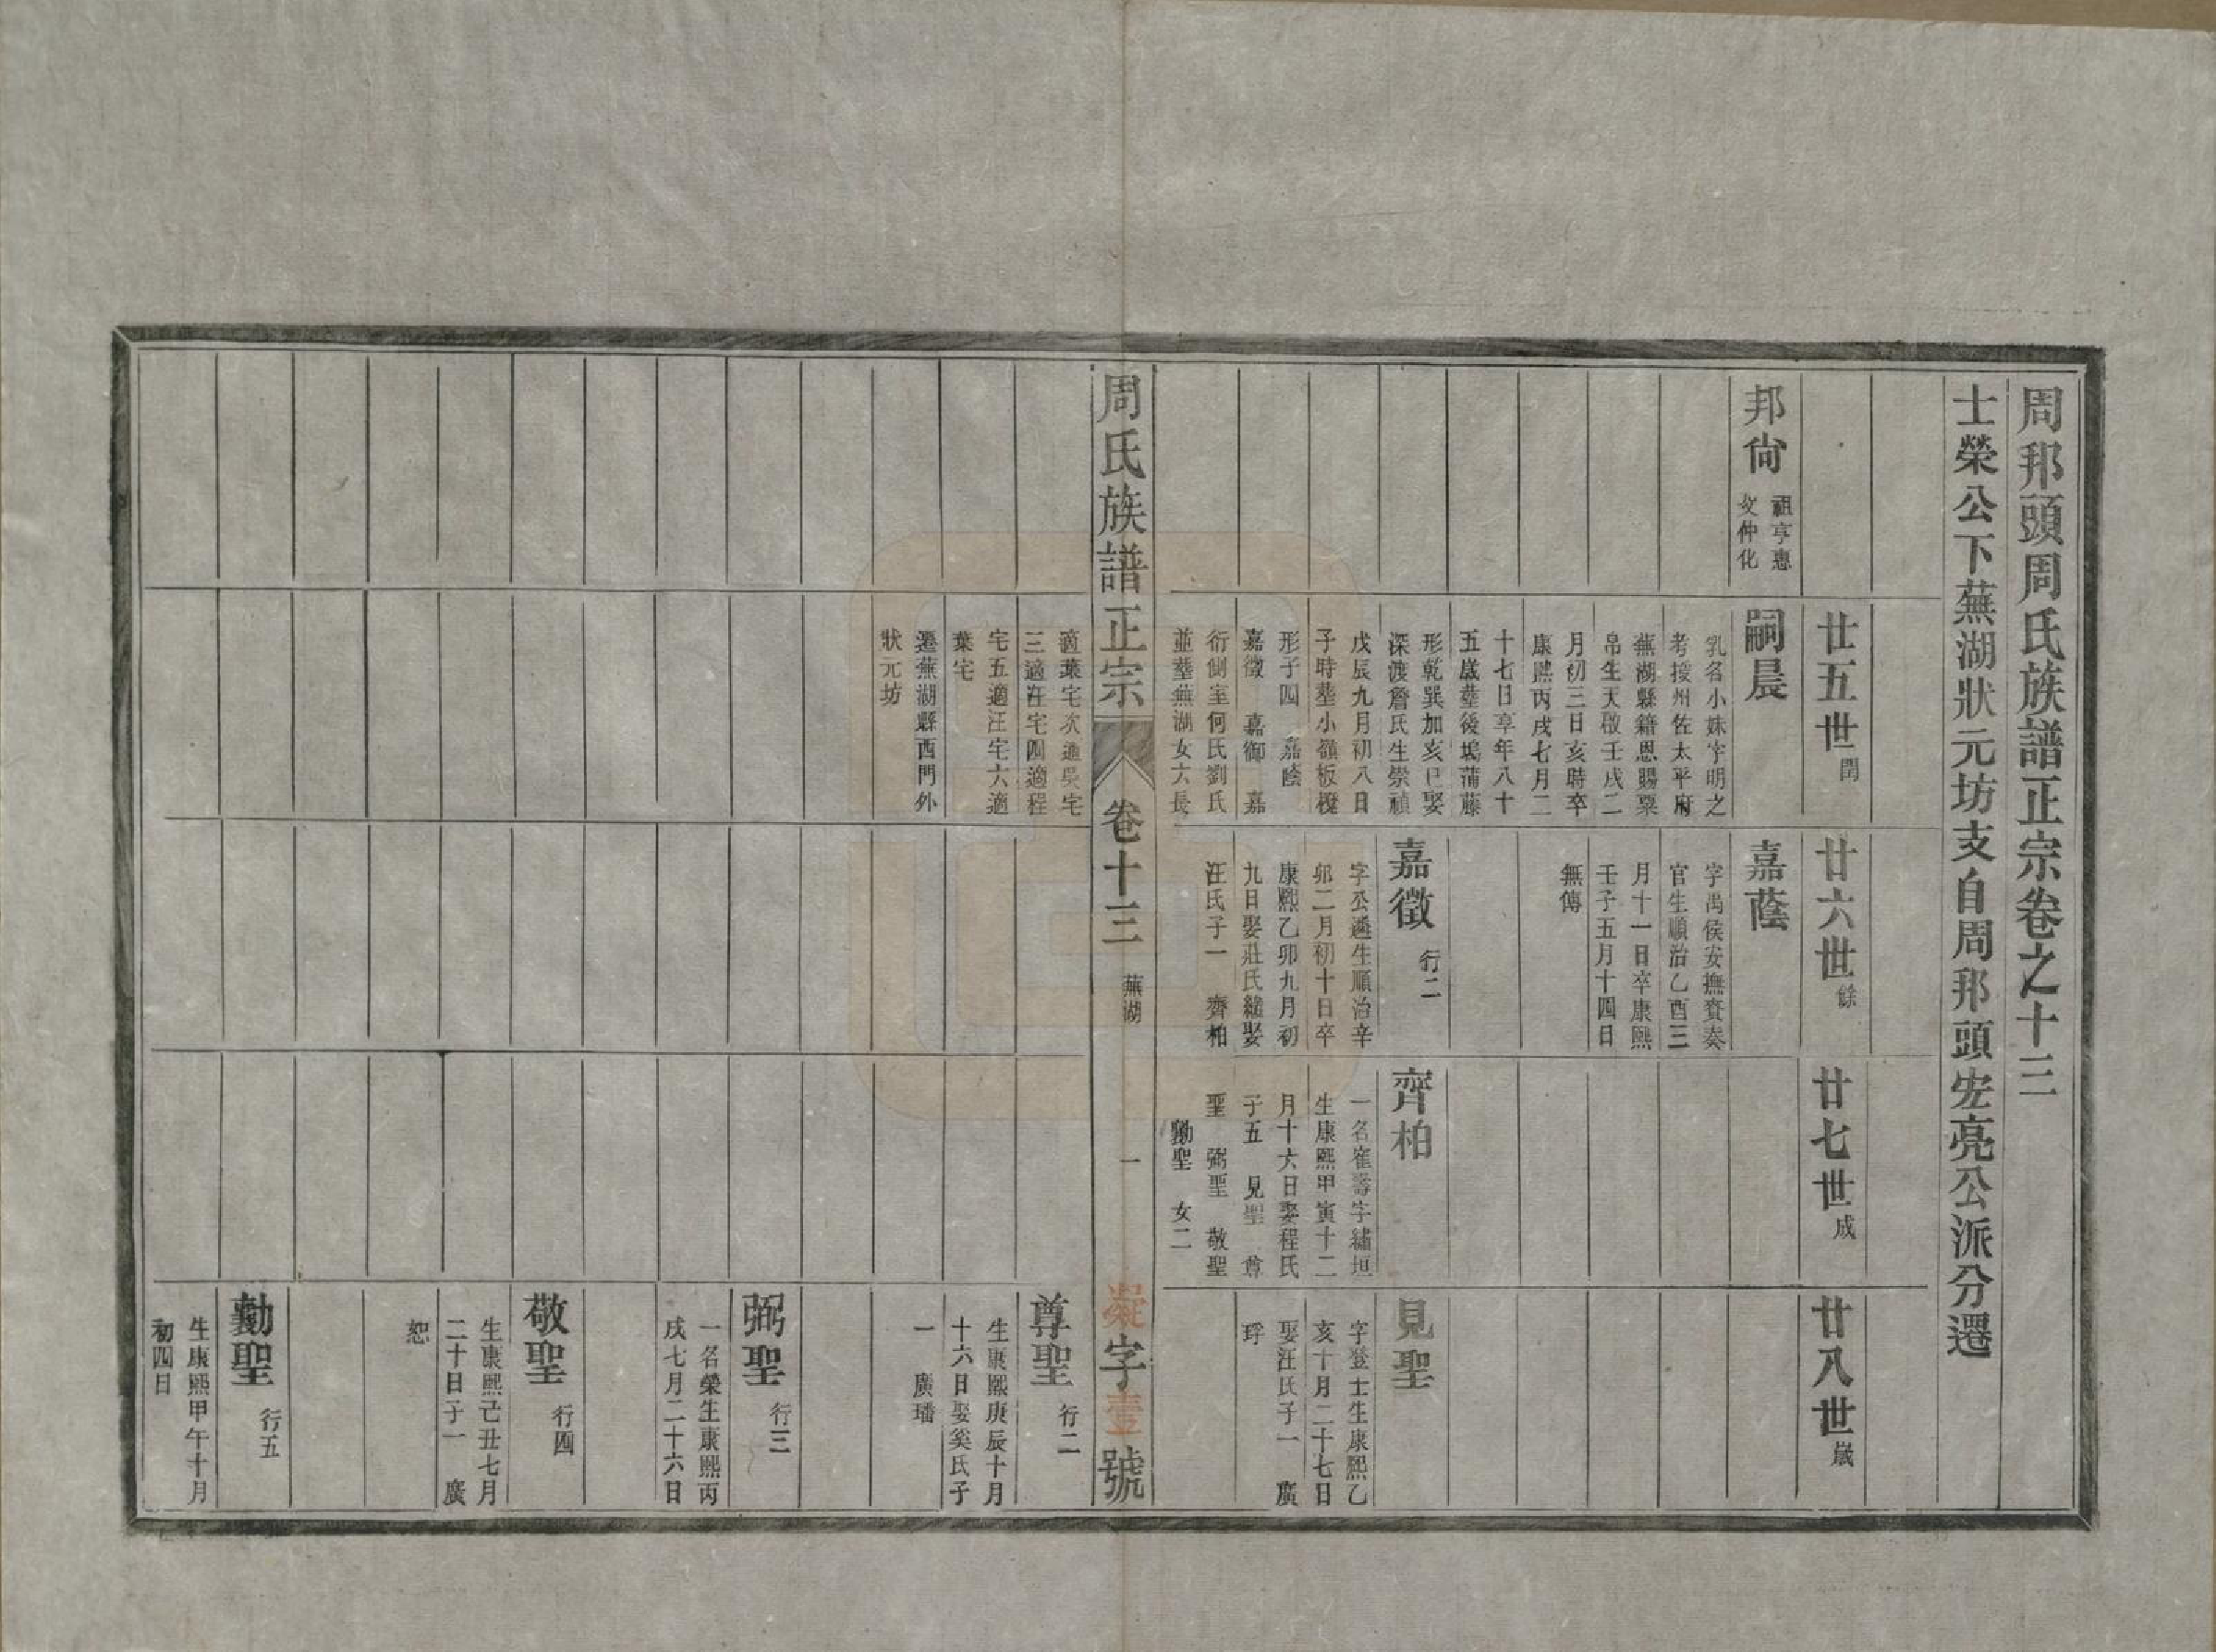 周邦頭周氏族譜正宗卷之十三
士榮公下蕪湖狀元坊支自周邦頭宏亮公派分遷
廿五世閏
廿六世餘
廿七世成
廿八世歲
邦尙
祖亨惠
父仲化
嗣晨
乳名小妹字明之
考授州佐太平府
蕪湖縣籍恩賜粟
帛生天啟壬戌二
月初三日亥時卒
康熙丙戌七月二
十七日享年八十
五歲塟後塢蒲藤
形乾巽加亥巳娶
深渡詹氏生崇禎
戊辰九月初八日
子時塟小嶺板櫈
形子四 嘉蔭
嘉徵 嘉御 嘉
衍側室何氏劉氏
並塟蕪湖女六長
適葉宅次適吳宅
三適汪宅四適程
宅五適汪宅六適
葉宅
遷蕪湖縣西門外
狀元坊
嘉蔭
字禹侯安撫賫奏
官生順治乙酉三
月十一日卒康熙
壬子五月十四日
無傳
嘉徵 行二
字公遴生順治辛
卯二月初十日卒
康熙乙卯九月初
九日娶莊氏繼娶
汪氏子一 齊柏
齊柏
一名隺壽字繡垣
生康熙甲寅十二
月十六日娶程氏
子五 見聖 尊
聖 弼聖 敬聖
勷聖 女二
見聖
字登士生康熙乙
亥十月二十七日
娶汪氏子一 廣
琈
尊聖 行二
生康熙庚辰十月
十六日娶奚氏子
一 廣璠
弼聖 行三
一名榮生康熙丙
戌七月二十六日
敬聖 行四
生康熙己丑七月
二十日子一 廣
恕
勷聖 行五
生康熙甲午十月
初四日
周氏族譜正宗 卷十三 蕪湖 一 凝字壹號